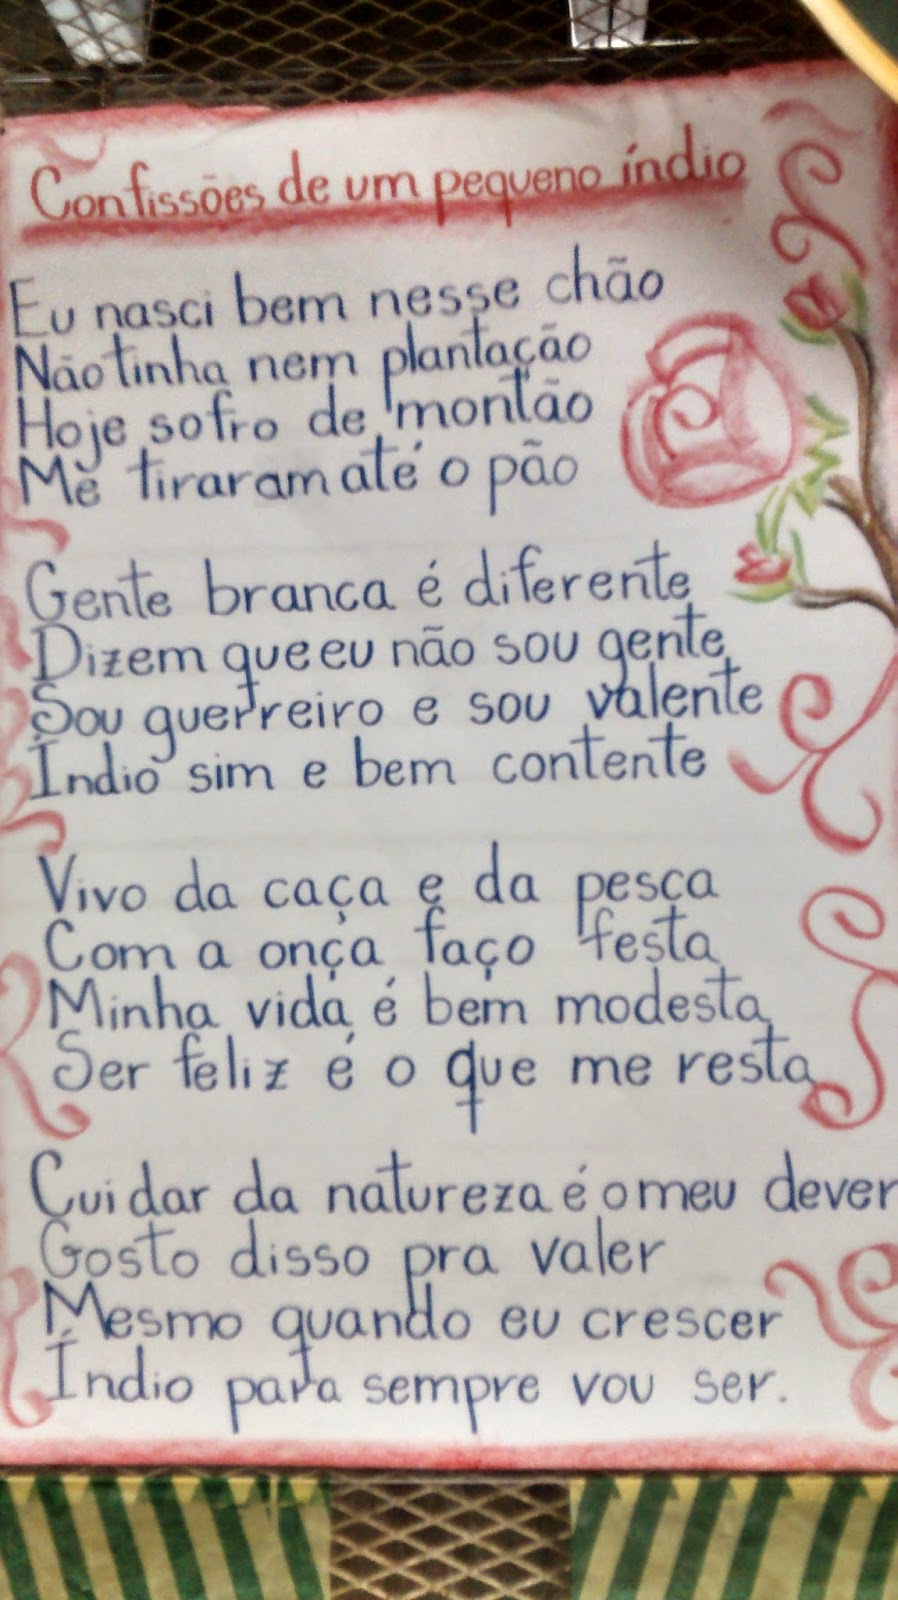 Confissões de um pequeno índio
Eu nasci bem nesse chão
Não tinha nem plantação
Hoje sofro de montão
Me tiraram até o pão
Gente branca é diferente
Dizem que eu não sou gente
Sou guerreiro e sou valente
Índio sim e bem contente
Vivo da caça e da pesca
Com a onça faço festa
Minha vida é bem modesta
Ser feliz é o que me resta
Cuidar da natureza é o meu dever
Gosto disso pra valer
Mesmo quando eu crescer
Índio para sempre vou ser.